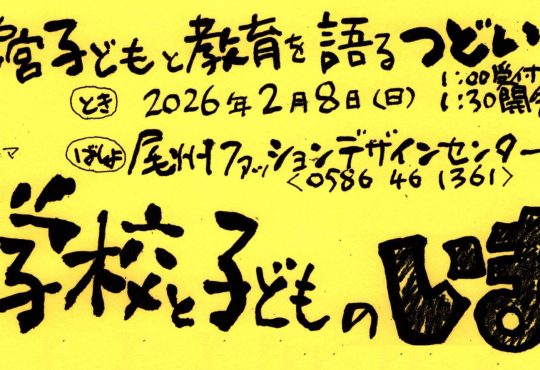 宮子どもと教育を語るつどい
1:00受付
とき 2026年2月8日(日) 1:30開会
マ
ばしょ 尾州ファッションデザインセンター
<0586 46 1361>
学校と子どものいま